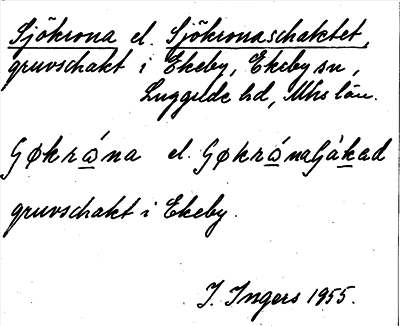 Sjökrona el. Sjökronaschaktet,
gruvschakt i Ekeby, Ekeby sn,
Luggude hd, Mhs län.
el.
gruvschakt i Ekeby.
I. Ingers 1955.